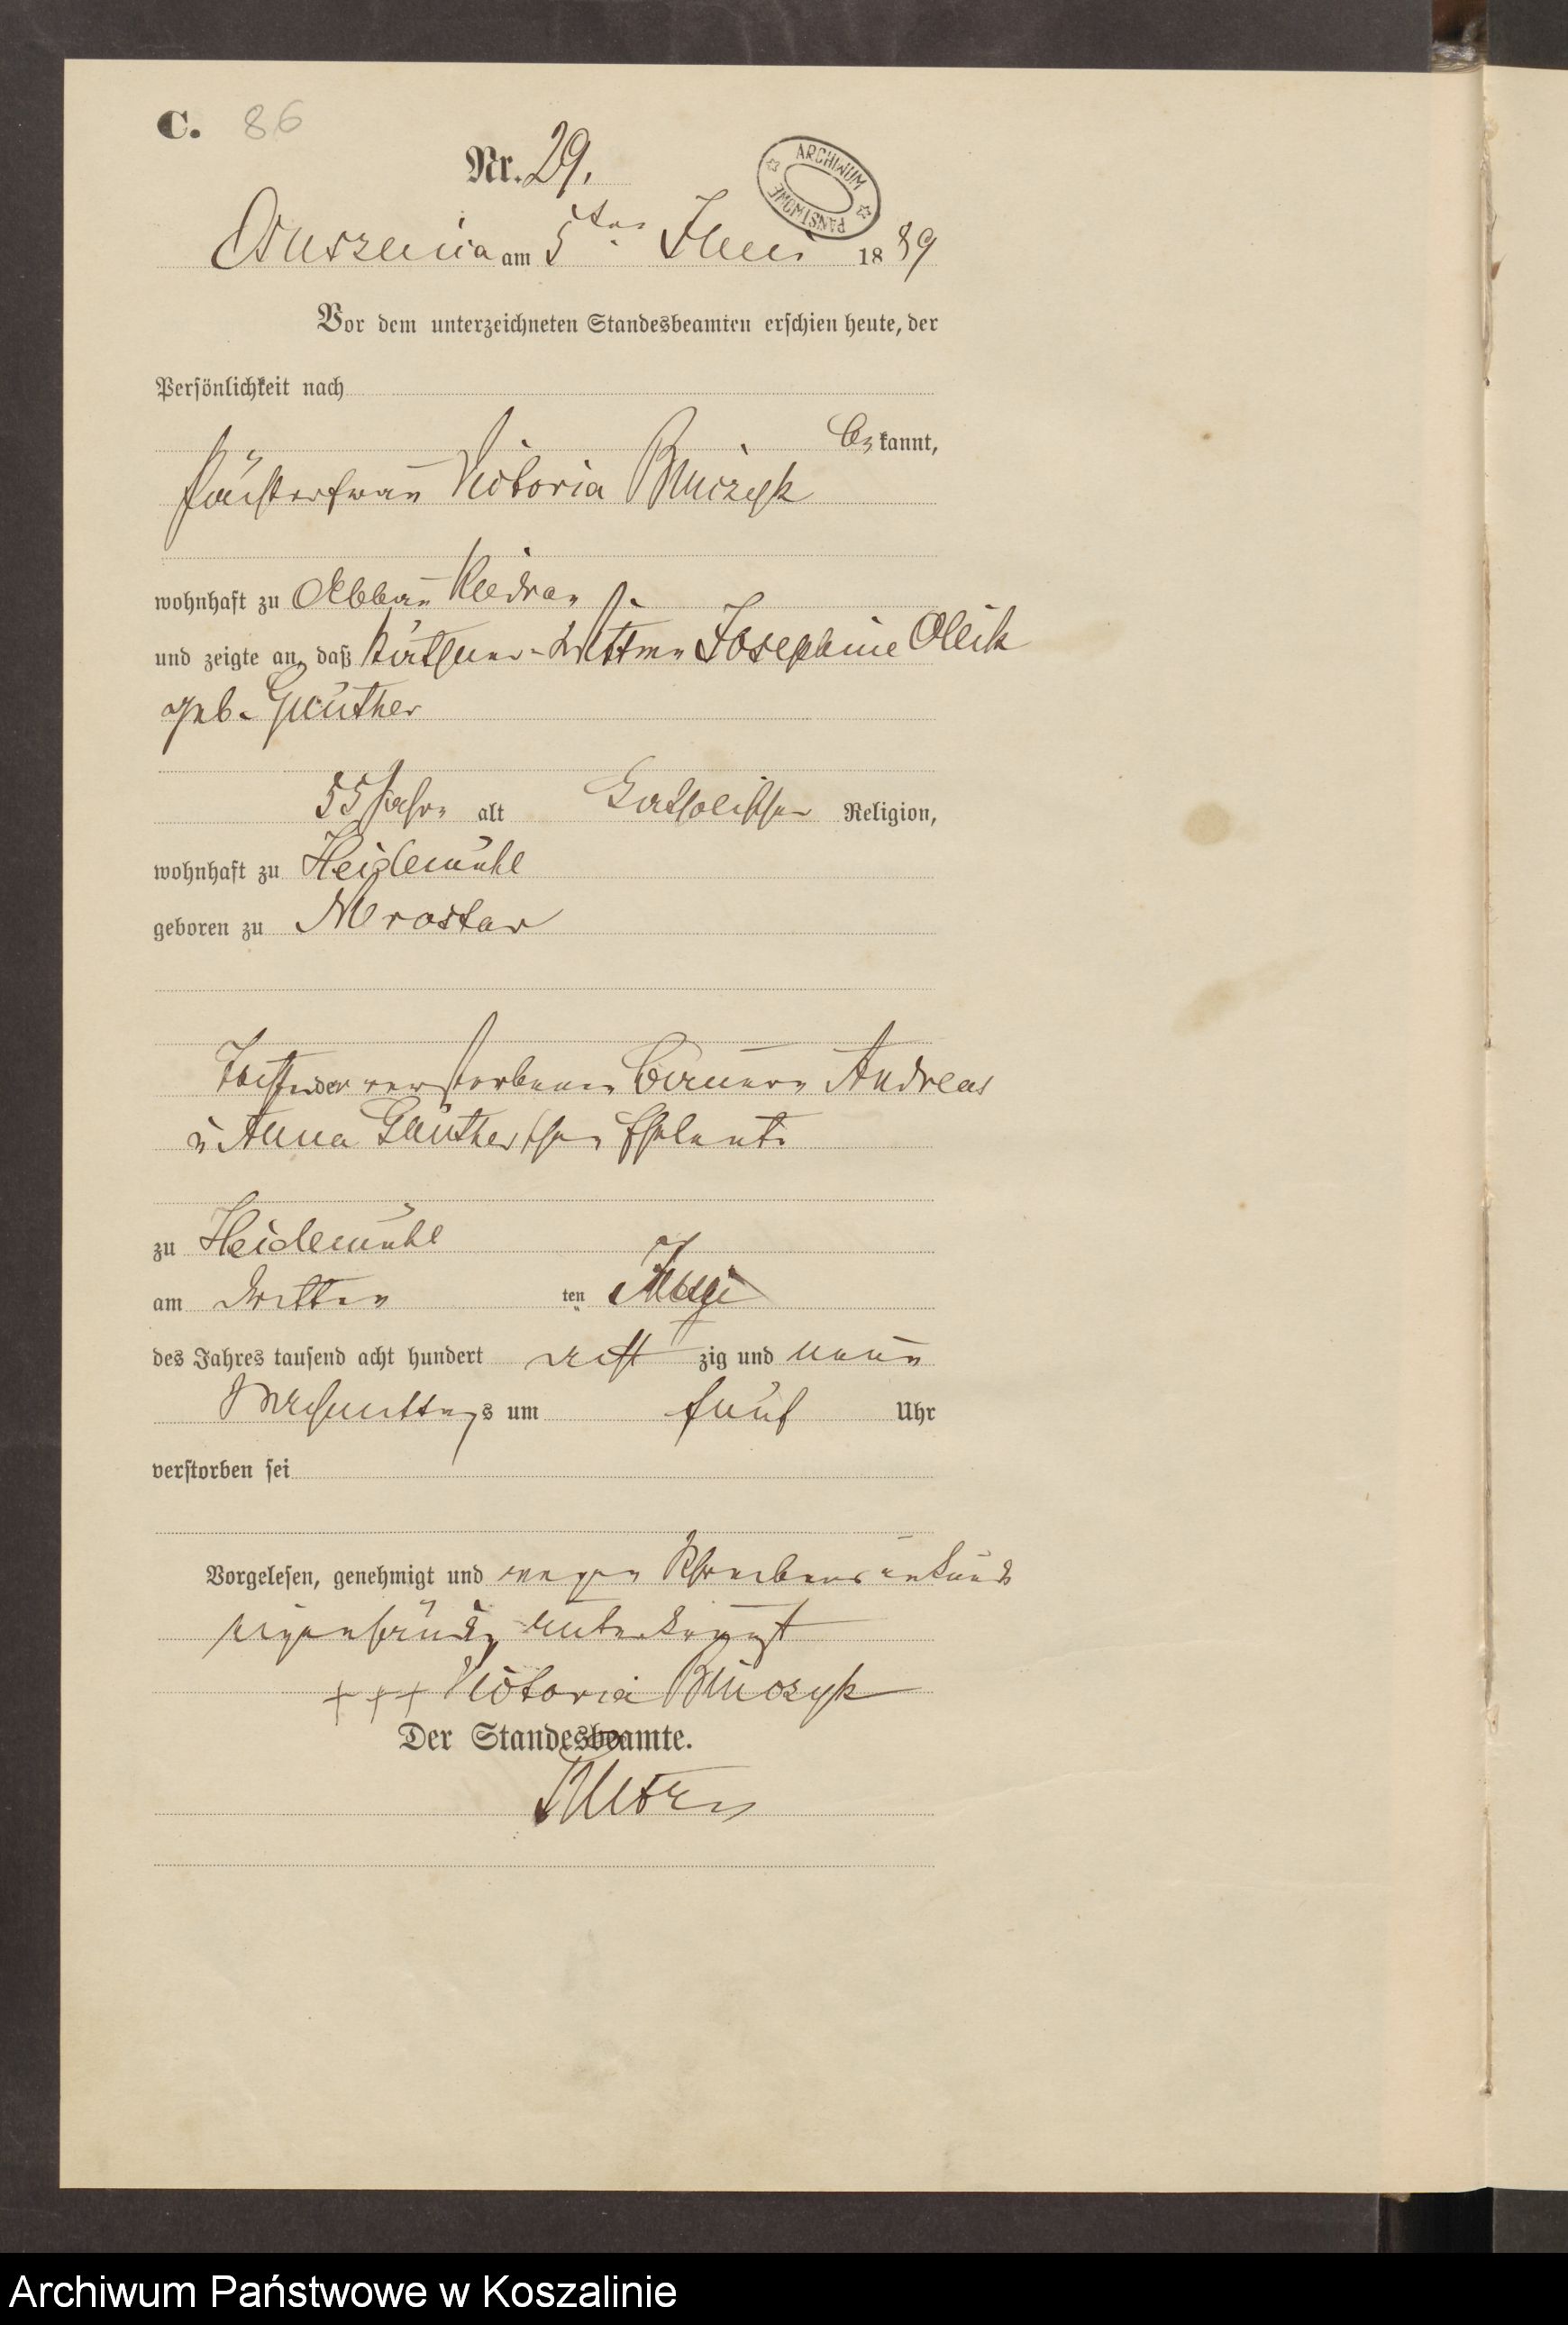 C. 86
Nr. 29.
ARCHIWUM PAŃSTWOWE
Ossuszenica am 5ten Juni 1889
Vor dem unterzeichneten Standesbeamten erschien heute, der
Persönlichkeit nach
bekannt,
Försterfrau Victoria Binczyk
wohnhaft zu
und zeigte an, daß Käthner-Wittwe Josephine Olleik
geb. Günther
55 Jahre alt katholischer Religion,
wohnhaft zu Heidemühl
geboren zu
Tochter der verstorbenen Bauern Andreas
u Anna Güntherschen Eheleute
zu Heidemühl
am dritten ten
des Jahres tausend acht hundert acht zig und neun
Nachmittags um fünf Uhr
verstorben sei
Vorgelesen, genehmigt und wegen Schreibensunkunde
eigenhändig unterkreuzt
+++ Victoria Binczyk
Der Standesbeamte.
Archiwum Państwowe w Koszalinie